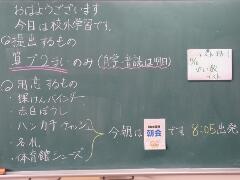 おはようございます
今日は校外学習です。
①提出するもの
算プ2まい のみ (自学・音読は明日)
②用意するもの
・探けんバインダー
・赤白ぼうし
・ハンカチ・ティッシュ
・名札
・体育館シューズ
今朝は 朝会 です 8:05出発